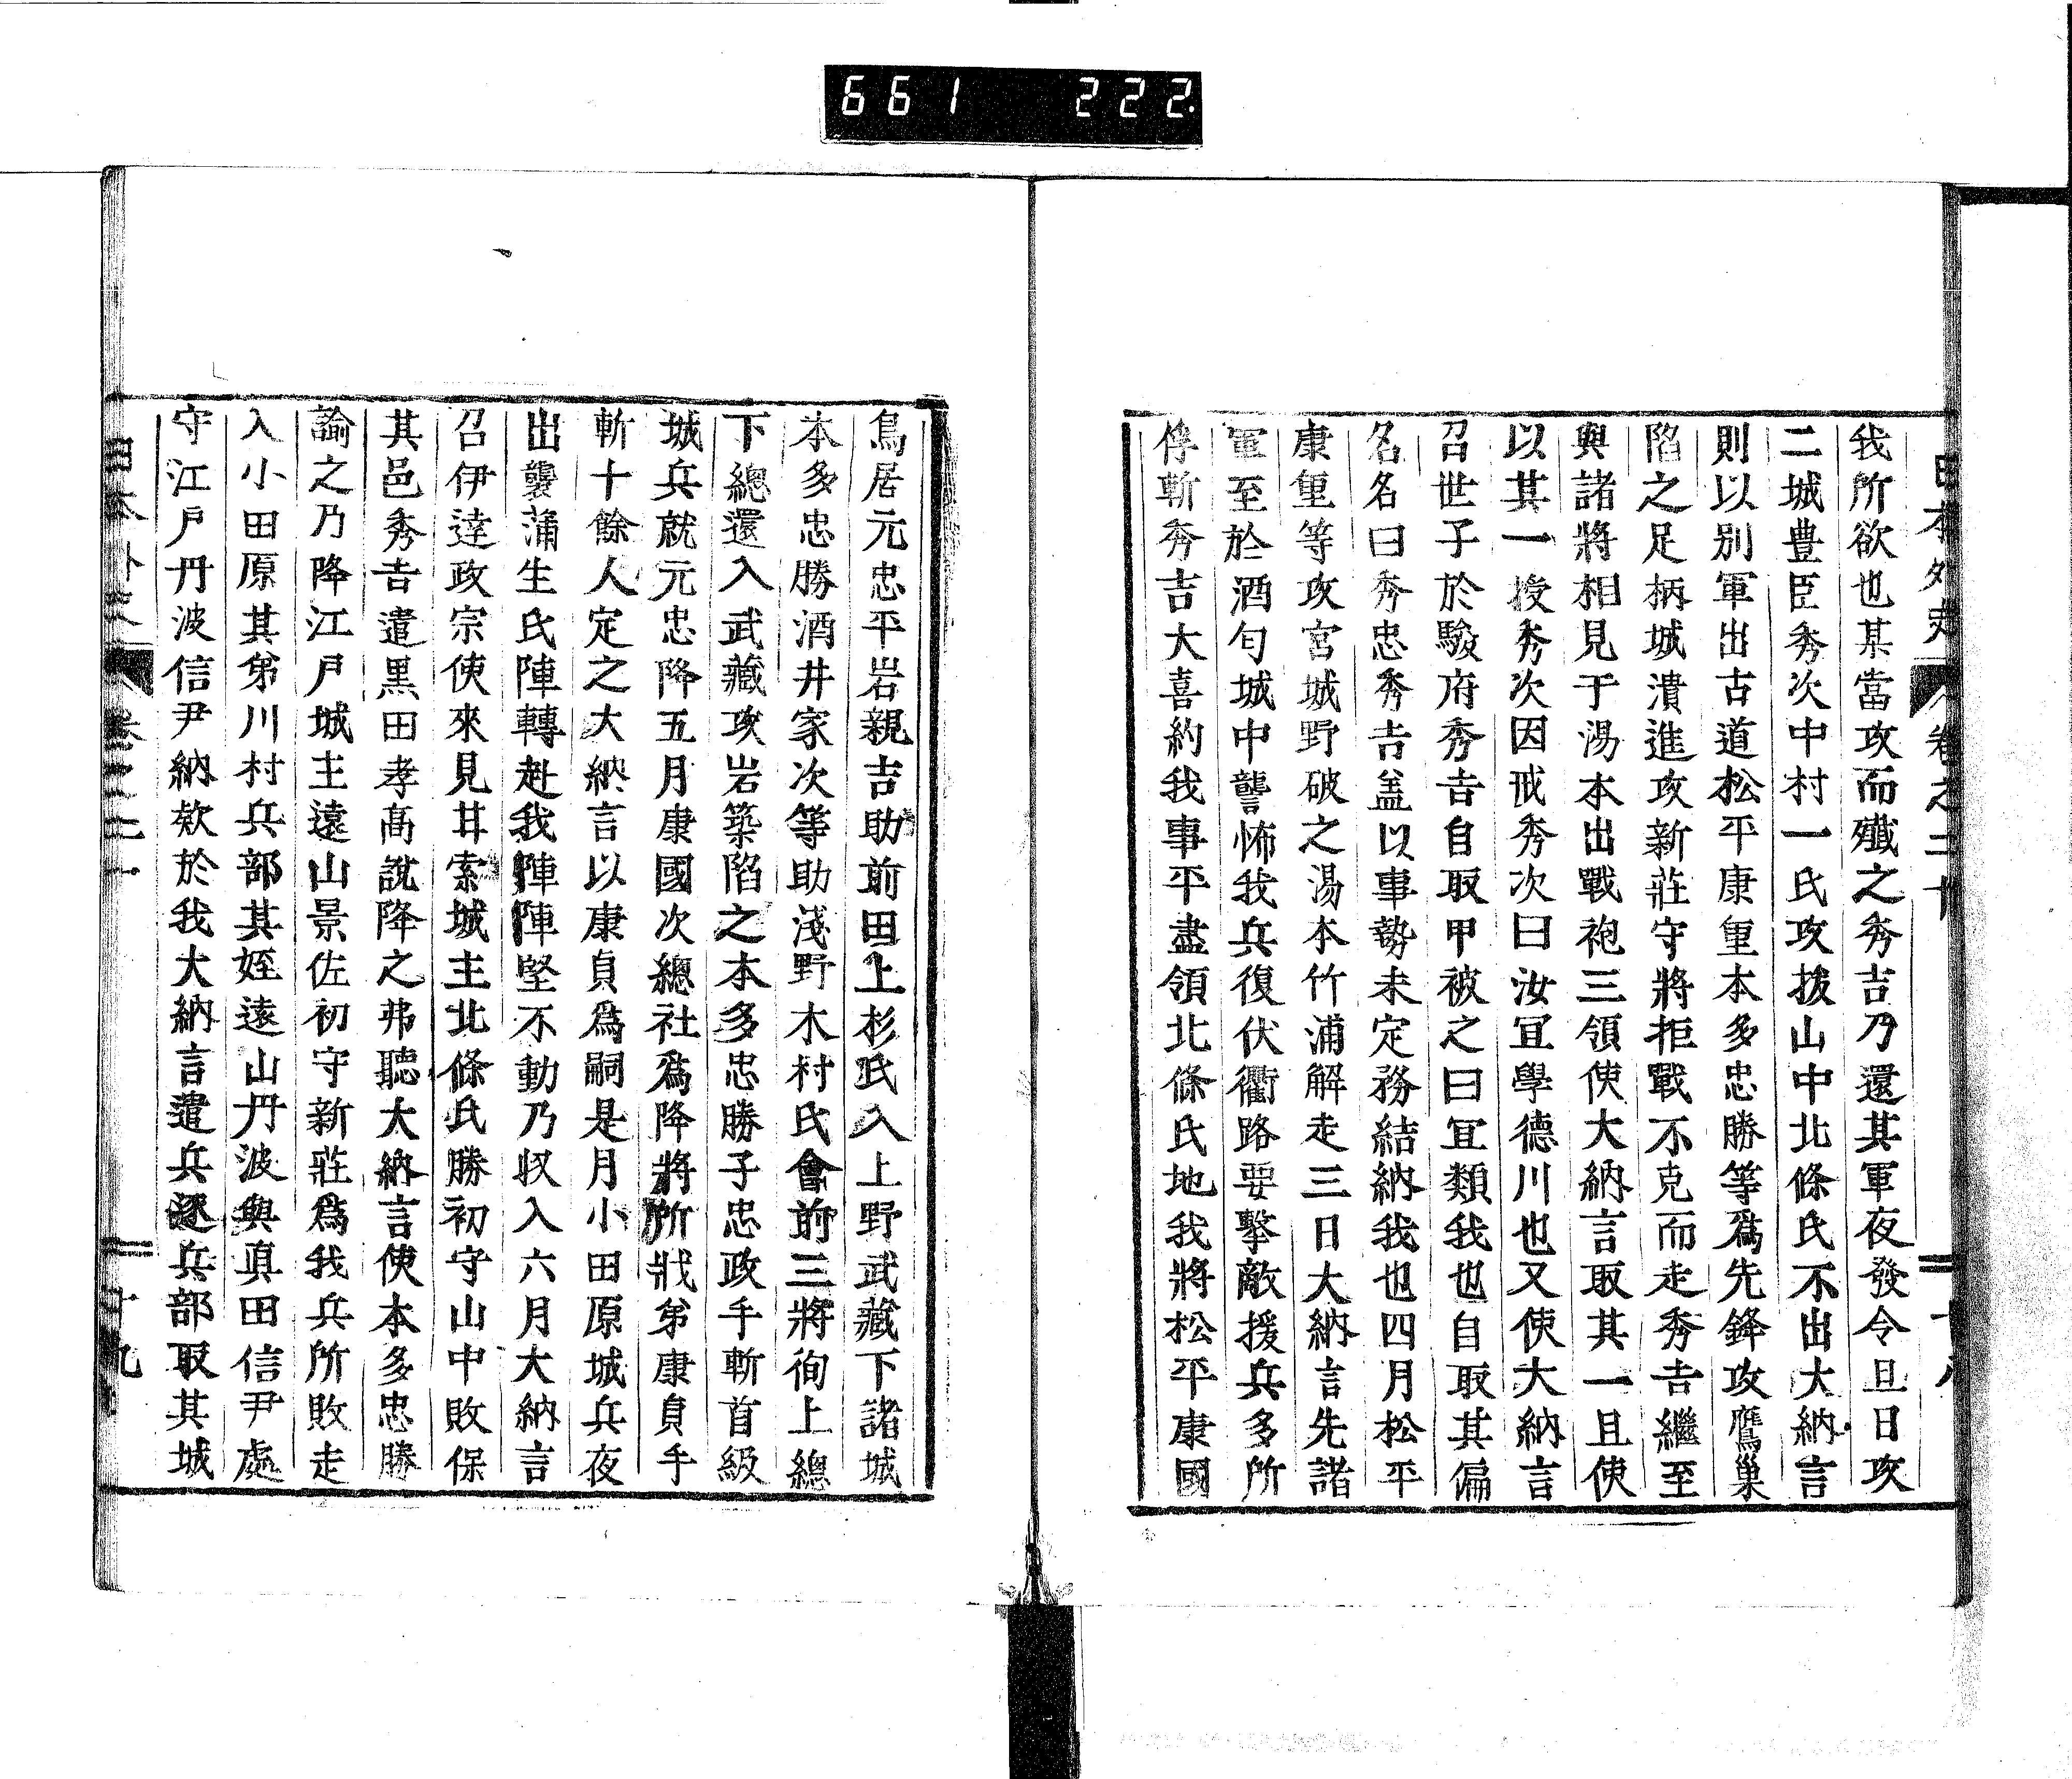 661 222
日本外史 卷之二十 十八
我所欲也某當攻而殲之秀吉乃還其軍夜發令旦日攻
二城豊臣秀次中村一氏攻拔山中北條氏不出大納言
則以別軍出古道松平康重本多忠勝等爲先鋒攻鷹巢
陷之足柄城潰進攻新莊守將拒戰不克而走秀吉繼至
與諸將相見于湯本出戰袍三領使大納言取其一且使
以其一授秀次因戒秀次曰汝冝學德川也又使大納言
召世子於駿府秀吉自取甲被之曰冝類我也自取其偏
名名曰秀忠秀吉盖以事勢未定務結納我也四月松平
康重等攻宮城野破之湯本竹浦解走三日大納言先諸
軍至於酒匂城中讋怖我兵復伏衢路要擊敵援兵多所
俘斬秀吉大喜約我事平盡領北條氏地我將松平康國
鳥居元忠平岩親吉助前田上杉氏入上野武藏下諸城
本多忠勝酒井家次等助淺野木村氏會前三將徇上總
下總還入武藏攻岩築陷之本多忠勝子忠政手斬首級
城兵就元忠降五月康國次總社爲降將所戕弟康貞手
斬十餘人定之大納言以康貞爲嗣是月小田原城兵夜
出襲蒲生氏陣轉赴我陣陣堅不動乃收入六月大納言
召伊達政宗使來見甘索城主北條氏勝初守山中敗保
其邑秀吉遣黒田孝高說降之弗聽大納言使本多忠勝
諭之乃降江戶城主遠山景佐初守新莊爲我兵所敗走
入小田原其弟川村兵部其姪遠山丹波與眞田信尹處
守江戶丹波信尹納欵於我大納言遣兵逐兵部取其城
日本外史 卷之二十 十九